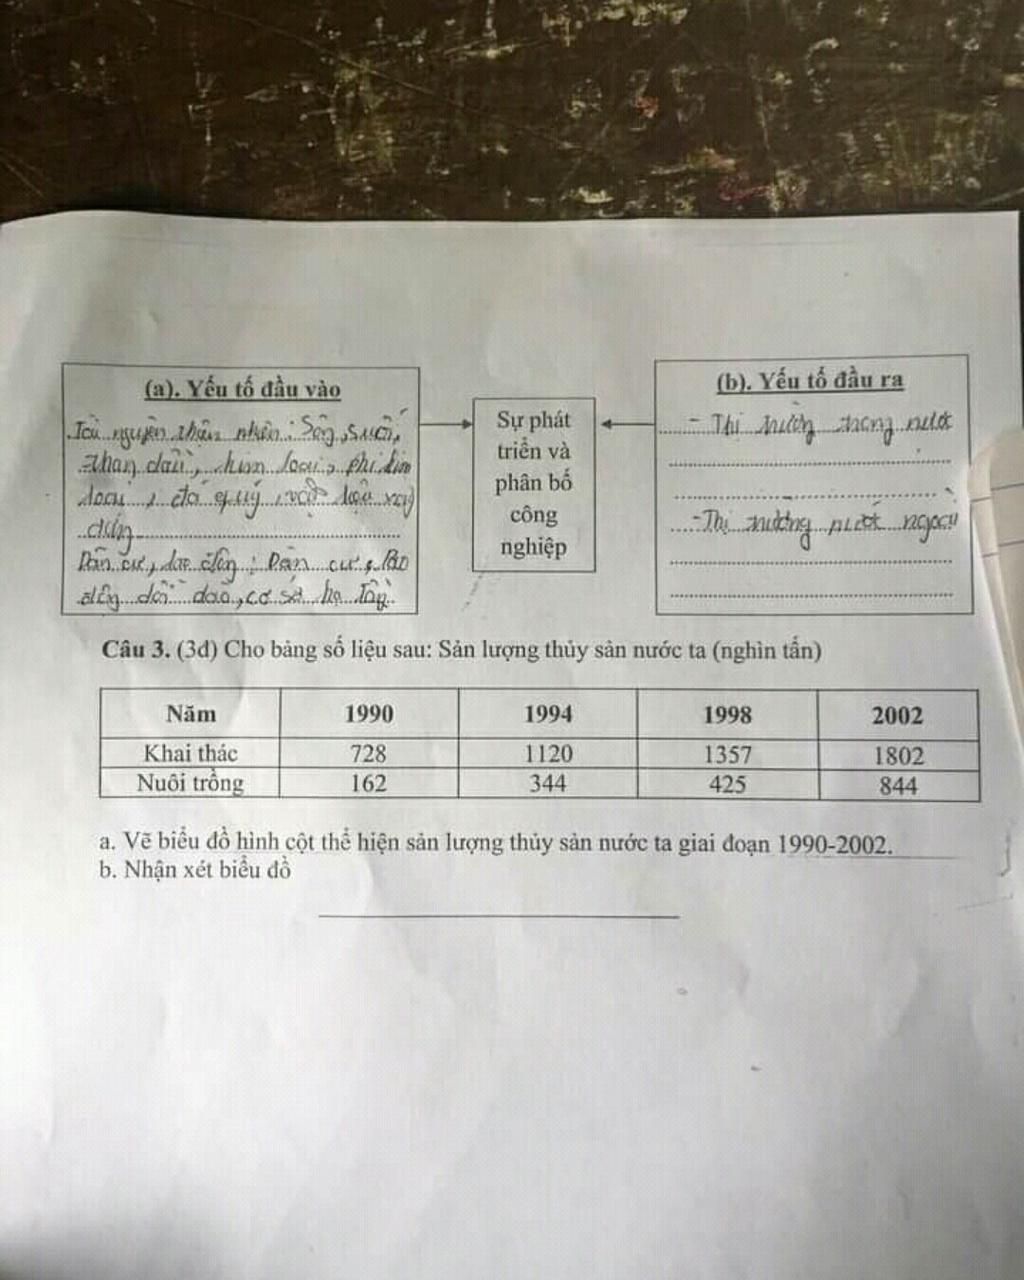 (a). Yếu tố đầu vào
Tài nguyên thiên nhiên: Sông, suối,
than, dầu, kim loại, phi kim
loại, đá quý, vật liệu xây
dựng
Dân cư, lao động: Dân cư, lao
động dồi dào, cơ sở hạ tầng.
Sự phát
triển và
phân bố
công
nghiệp
(b). Yếu tố đầu ra
- Thị trường trong nước
- Thị trường nước ngoài
Câu 3. (3đ) Cho bảng số liệu sau: Sản lượng thủy sản nước ta (nghìn tấn)
Năm 1990 1994 1998 2002
Khai thác 728 1120 1357 1802
Nuôi trồng 162 344 425 844
a. Vẽ biểu đồ hình cột thể hiện sản lượng thủy sản nước ta giai đoạn 1990-2002.
b. Nhận xét biểu đồ